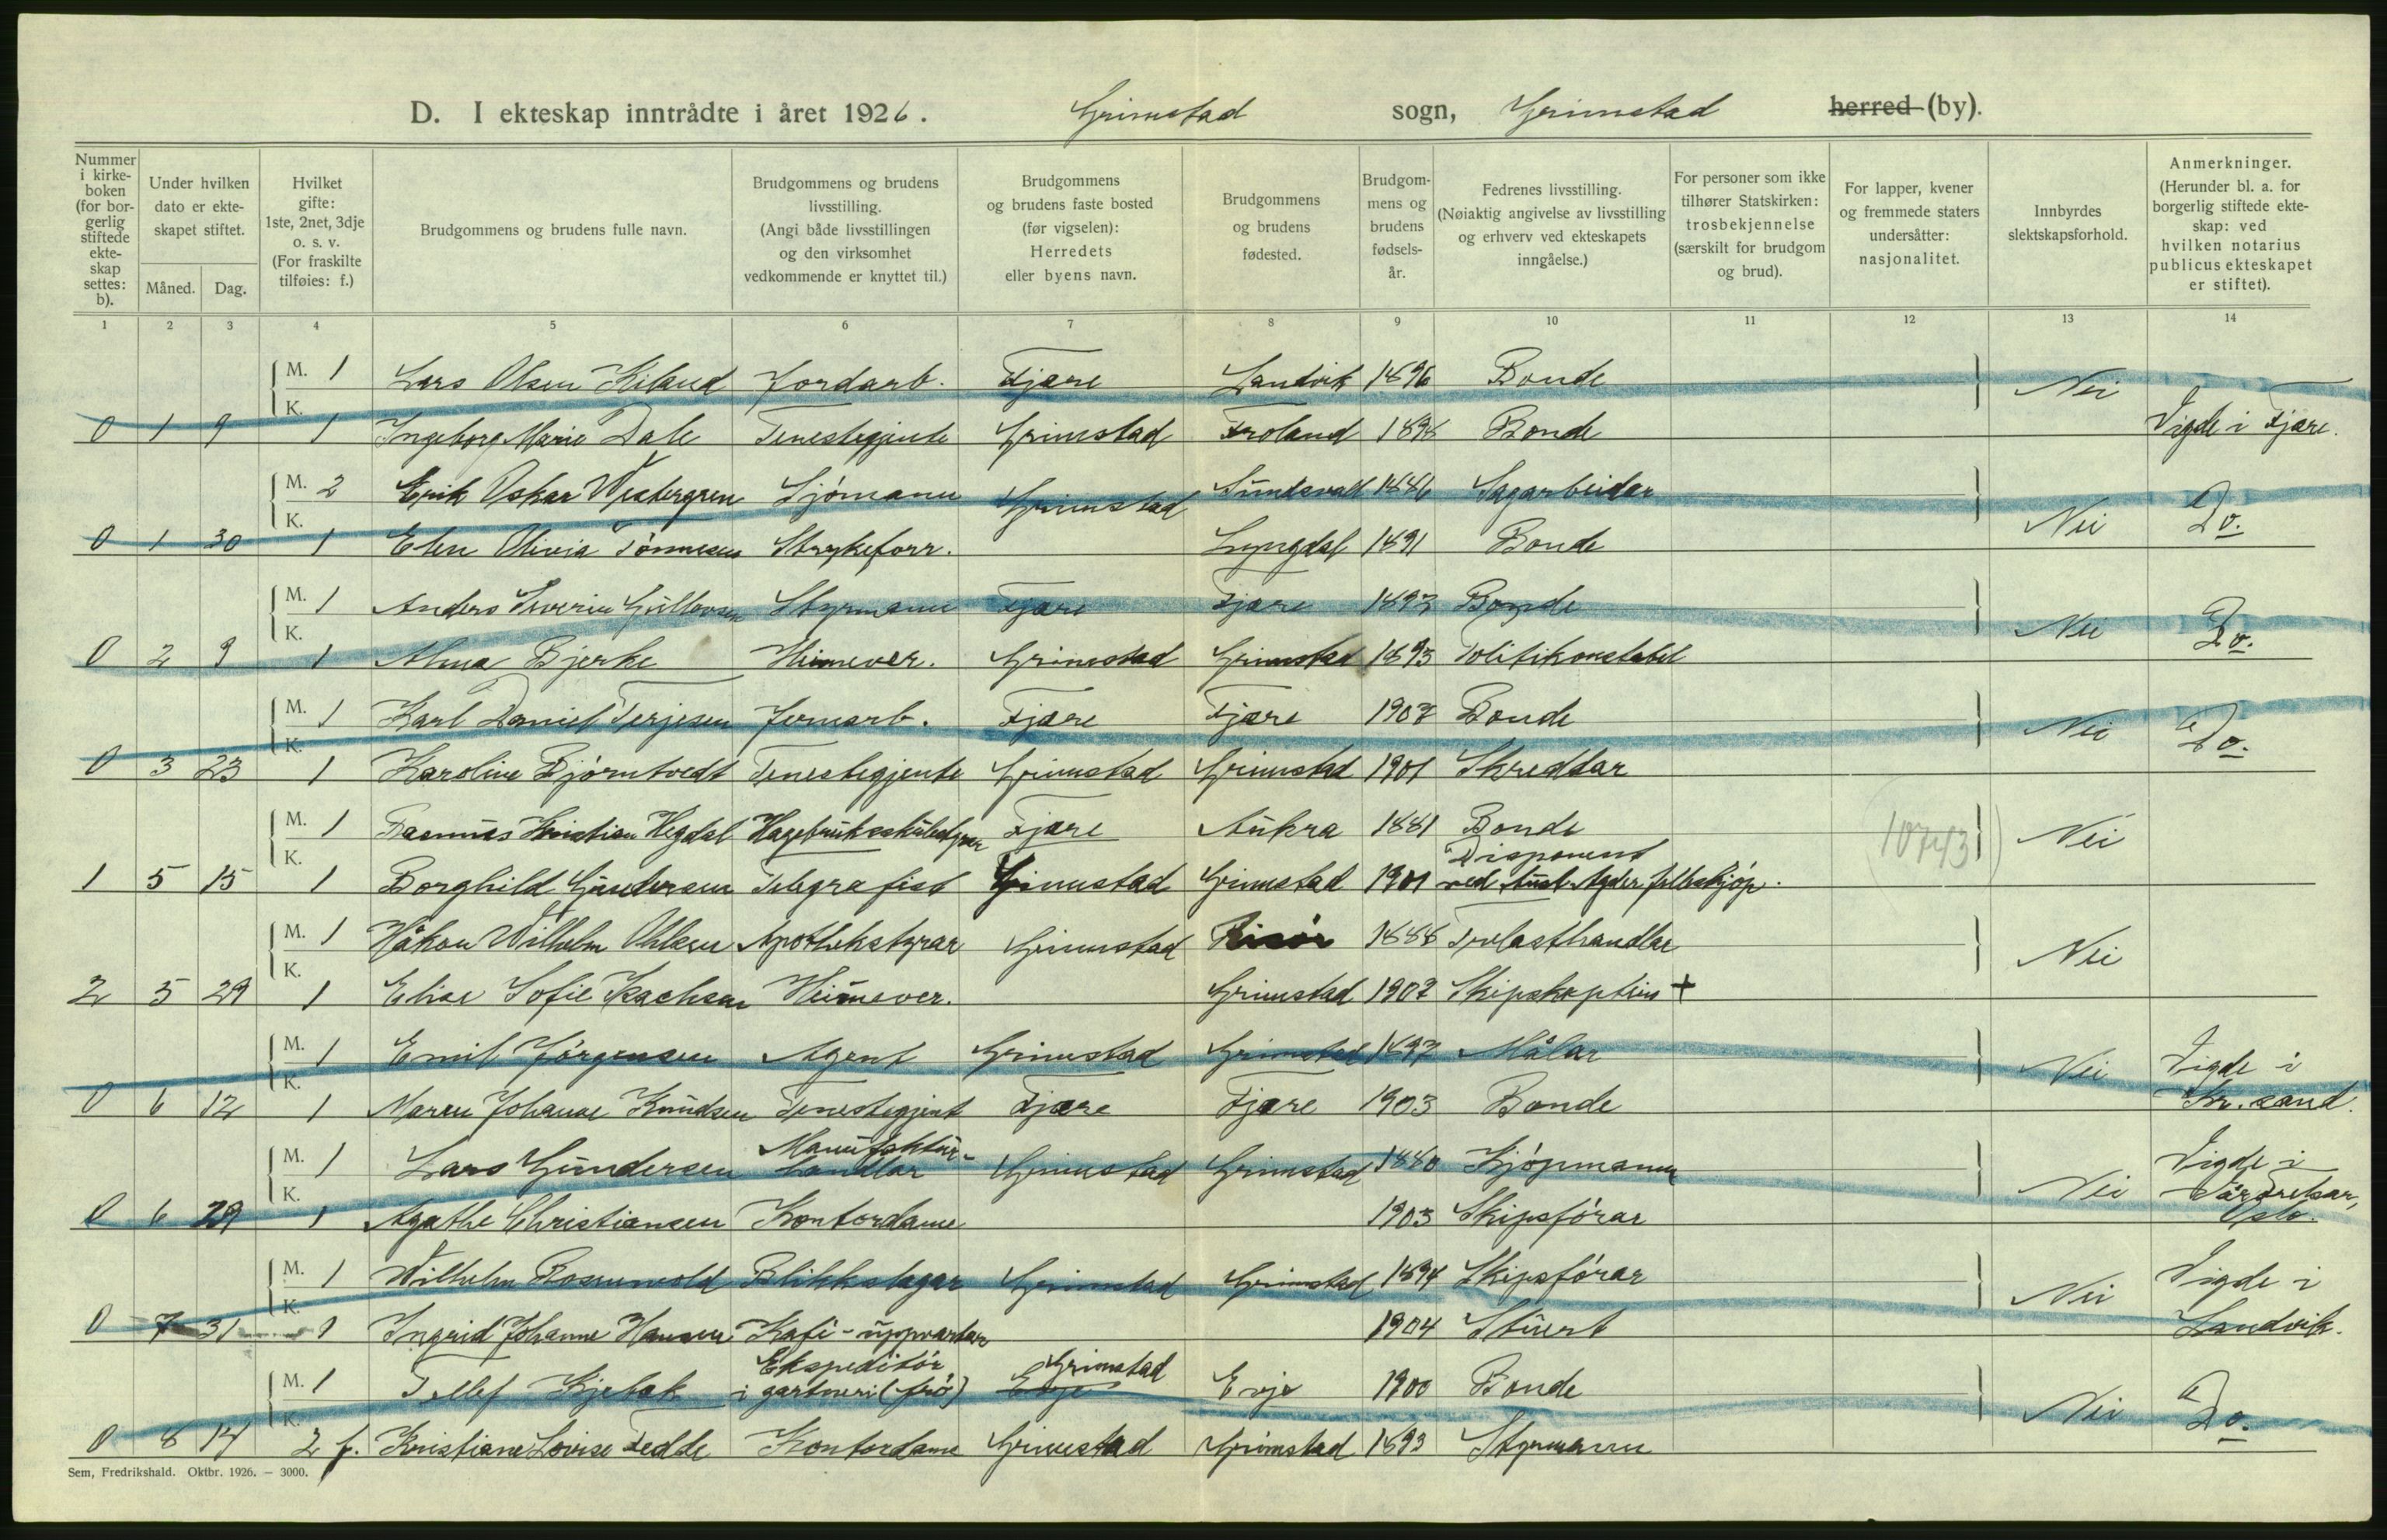 D. I ekteskap inntrådte i året 1926. Grimstad sogn, Grimstad herred (by).
Nummer i kirke-boken (for bor-gerlig stiftede ekte-skap settes: b).
Under hvilken dato er ekte-skapet stiftet.
Måned. Dag.
Hvilket gifte: 1ste, 2net, 3dje o. s. v. (For fraskilte tilføies: f.)
Brudgommens og brudens fulle navn.
Brudgommens og brudens livsstilling. (Angi både livsstillingen og den virksomhet vedkommende er knyttet til.)
Brudgommens og brudens faste bosted (før vigselen): Herredets eller byens navn.
Brudgommens og brudens fødested.
Brudgom-mens og brudens fødsels-år.
Fedrenes livsstilling. (Nøiaktig angivelse av livsstilling og erhverv ved ekteskapets inngåelse.)
For personer som ikke tilhører Statskirken: trosbekjennelse (særskilt for brudgom og brud).
For lapper, kvener og fremmede staters undersåtter: nasjonalitet.
Innbyrdes slektskapsforhold.
Anmerkninger. (Herunder bl. a. for borgerlig stiftede ekte-skap: ved hvilken notarius publicus ekteskapet er stiftet).
1 2 3 4 5 6 7 8 9 10 11 12 13 14
M. 1 Lars Olsen Kiland Jordarb. Fjære Landvik 1896 Bonde Nei
K. 0 1 9 1 Ingeborg Marie Dale Tenestegjente Grimstad Froland 1898 Bonde Vigde i Fjære.
M. 2 Erik Oskar Westergren Sjömann Grimstad Sundsvall 1886 Sagarbeidar
K. 0 1 30 1 Elen Olivia Tönnesen Strykeforr. Lyngdal 1891 Bonde Nei Do.
M. 1 Anders Severin Gullovsen Styrmann Fjære Fjære 1893 Bonde
K. 0 2 9 1 Alma Bjerke Heimever. Grimstad Grimstad 1893 Politikonstabel Nei Do.
M. 1 Karl Daniel Terjesen Jernarb. Fjære Fjære 1902 Bonde
K. 0 3 23 1 Karoline Bjørntvedt Tenestegjente Grimstad Grimstad 1901 Skreddar Nei Do.
M. 1 Rasmus Kristian Hegdal Fjære Aukra 1881 Bonde 10743 Nei
K. 1 5 15 1 Borghild Gundersen Telegrafist Grimstad Grimstad 1901 Disponent ved Aust-Agder felleskjöp.
M. 1 Håkon Wilhelm Ohlsen Apothekstyrar Grimstad Risör 1888 Trelasthandlar Nei
K. 2 5 29 1 Elise Sofie Isachsen Heimever. Grimstad 1902 Skipskaptein +
M. 1 Emil Jörgensen Agent Grimstad Grimstad 1897 Målar Nei Vigde i
K. 0 6 12 1 Maren Johanne Knudsen Tenestegjent Fjære Fjære 1903 Bonde Kr. sand.
M. 1 Lars Gundersen Manufaktur-handlar Grimstad Grimstad 1880 Kjöpmann Nei Vigde i
K. 0 6 29 1 Agathe Christiansen Kontordame 1903 Skipsförar Vår Frelsar, Oslo.
M. 1 Wilhelm Rosenvold Blikkslagar Grimstad Grimstad 1894 Skipsförar Nei Vigde i
K. 0 7 31 1 Ingrid Johanne Hansen Kafé-uppvartar 1904 Stuert Landvik.
M. 1 Tellef Kjetsak Ekspeditör i gartneri (frö) Evje Grimstad Evje 1900 Bonde
K. 0 8 14 2 f. Kristiane Lovise Fedde Kontordame Grimstad Grimstad 1893 Styrmann Nei Do.
Sem, Fredrikshald. Oktbr. 1926. – 3000.